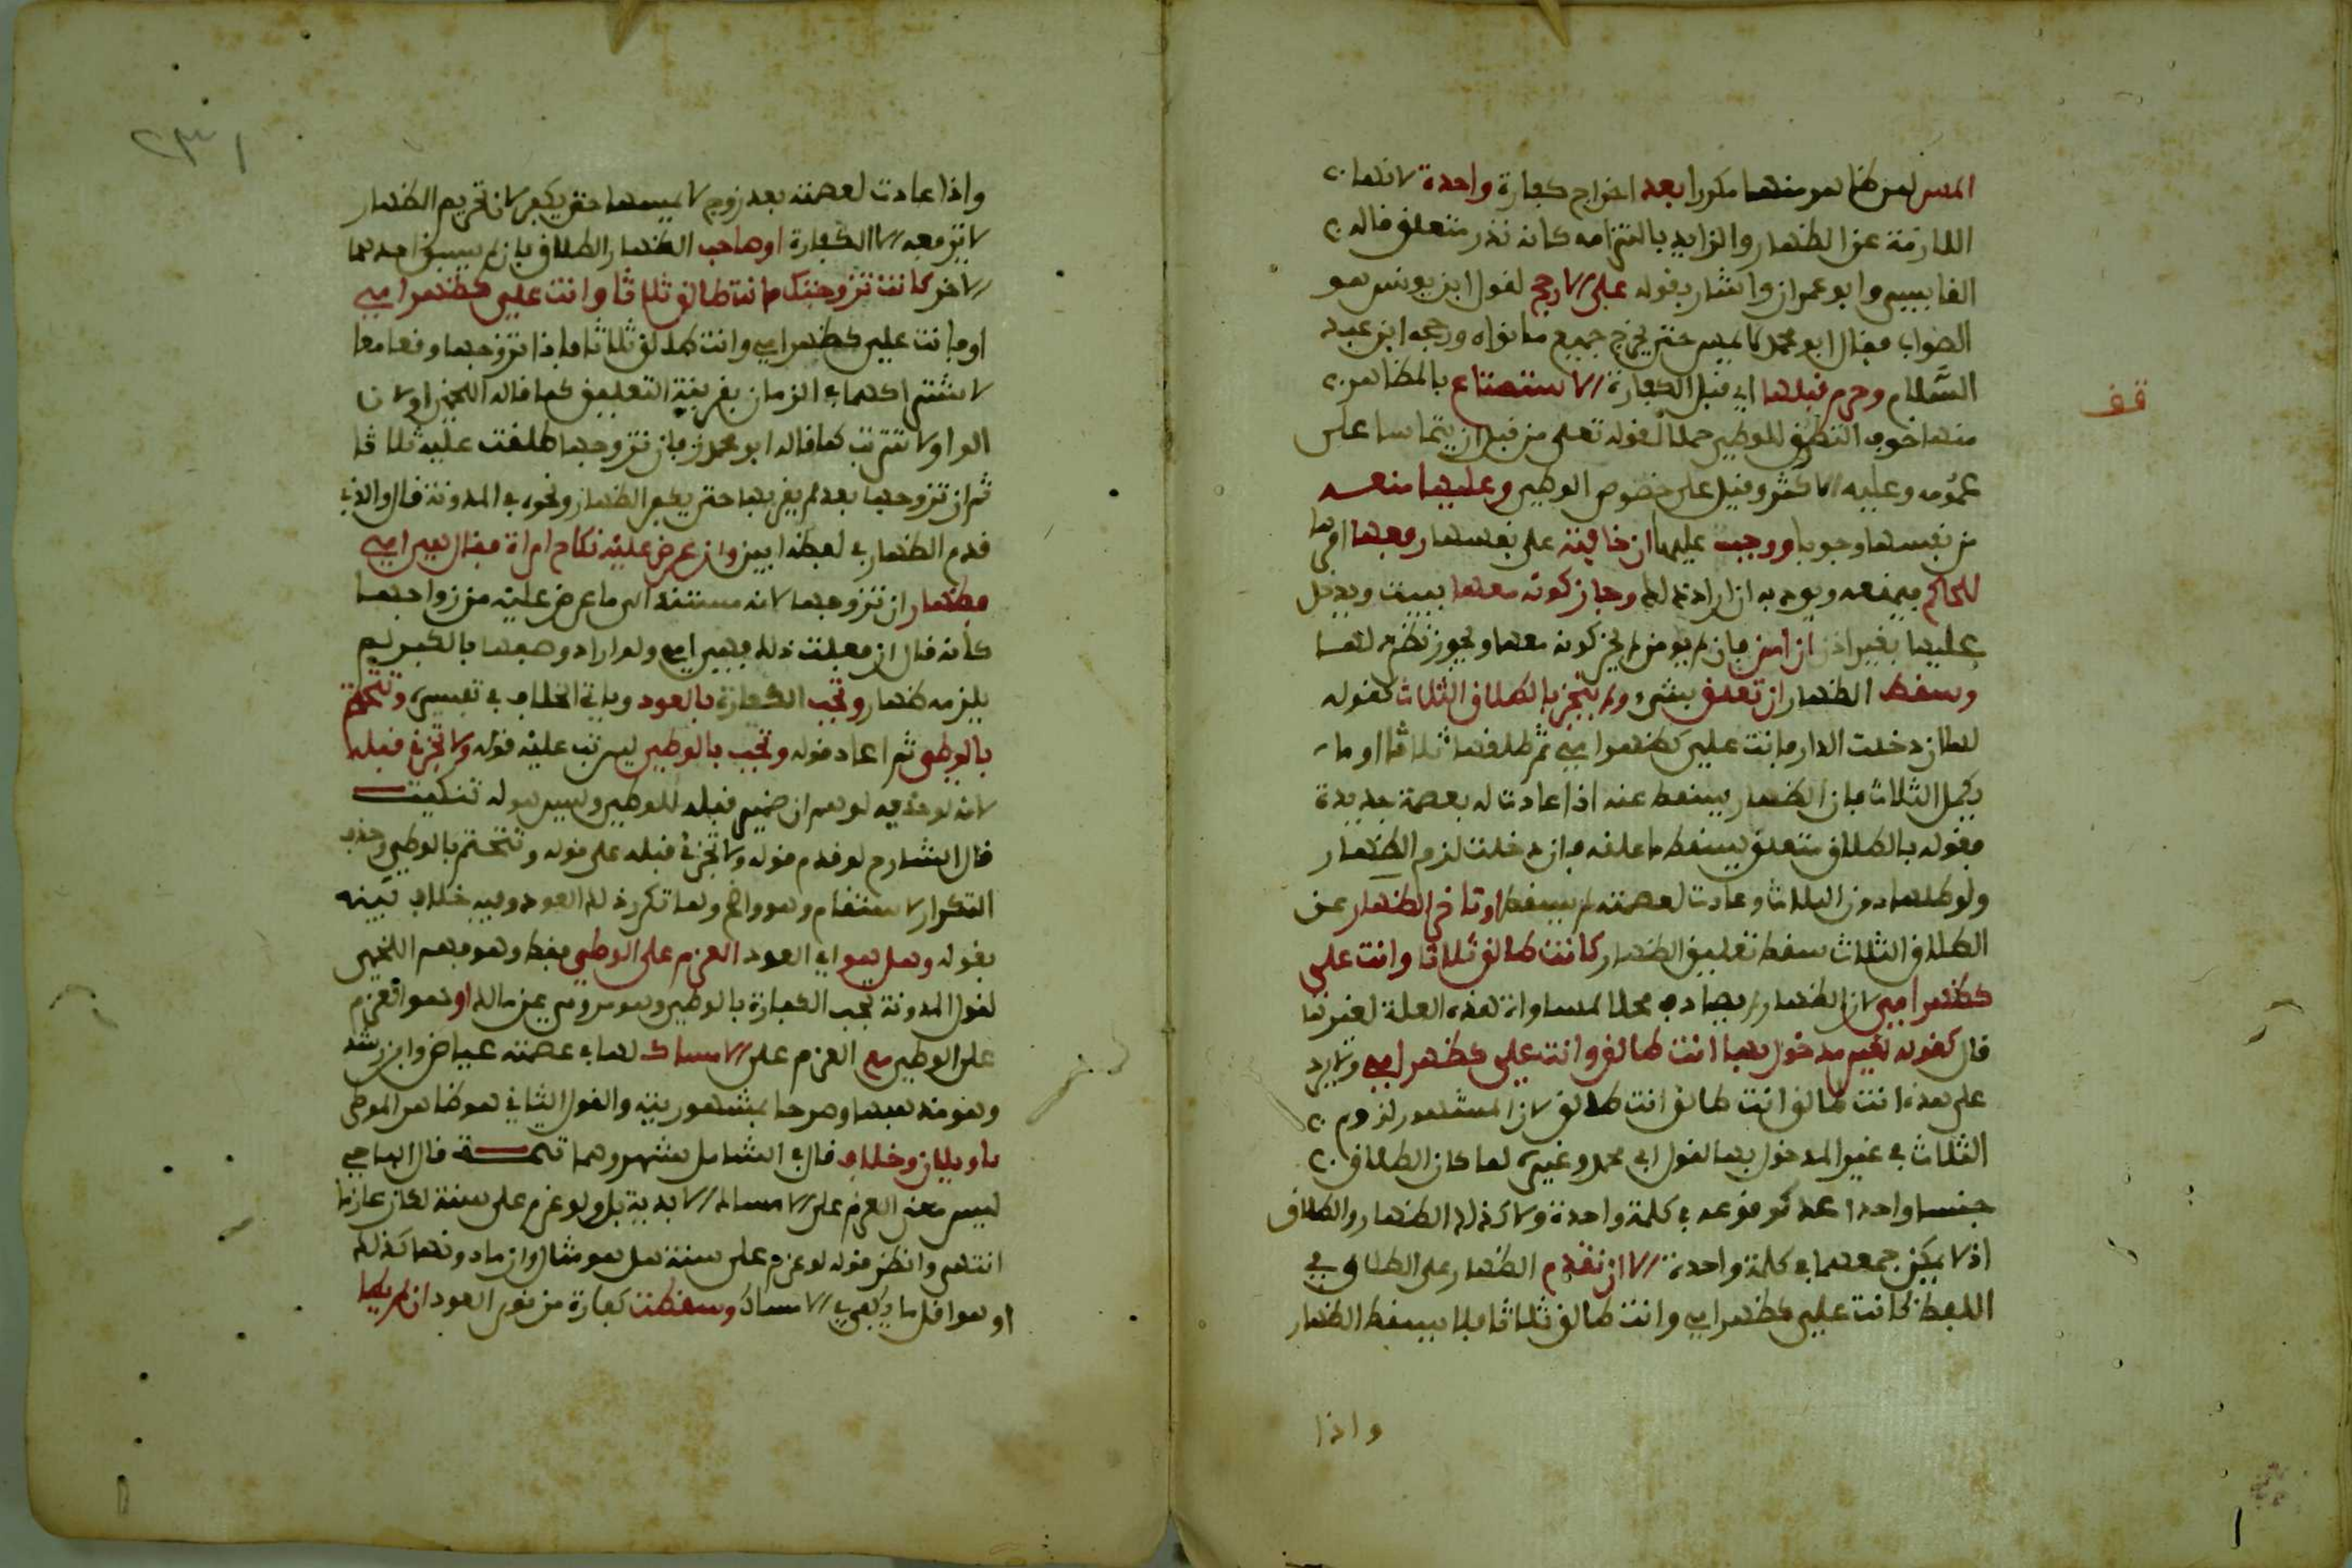 المس لمن ظاهر منها مكررا بعد اخراج كفارة واحدة لانها
اللازمة عن الظهار والزايد بالتزامه كانه نذر متعلق قاله
القابسي وابو عمران واشار بقوله على الارجح لقول ابن يونس هو
الصواب فقال ابو محمد لا يمس حتى يخرج جميع ما نواه ورجحه ابن عبد
السَّلام وحرم قبلها اي قبل الكفارة الاستمتاع بالمظاهر
منها خوف التطرق للوطئ حملا لقوله تعلى من قبل ان يتماسا على
عمومه وعليه الاكثر وقيل على خصوص الوطئ وعليها منعه
من نفسها وجوبا ووجب عليها ان خافته على نفسها رفعها امرها
للحاكم فيمنعه ويودبه ان اراد ذلك وجاز كونه معها ببيت ويدخل
عليها بغير اذن ان امن فان لم يومن لم يجز كونه معها ويجوز نظره لها
وسقط الظهار ان تعلق بشيء ولم يتنجز بالطلاق الثلاث كقوله
لها ان دخلت الدار فانت علي كظهر امي ثم طلقها ثلاثا او ما
يكمل الثلاث فان الظهار يسقط عنه اذا عادت له بعصمة جديدة
فقوله بالطلاق متعلق بيسقط ما علقه فان دخلت لزم الظهار
ولو طلقها دون الثلاث وعادت لعصمته لم يسقط او تاخر الظهار عن
الطلاق الثلاث سقط تعليق الظهار كانت طالق ثلاثا وانت علي
كظهر امي لان الظهار لم يصادف محلا لمساواة هذه العلة لغيرها
قال كقوله لغير مدخول بها انت طالق وانت علي كظهر امي ولا يرد
على هذه انت طالق انت طالق انت طالق لان المشهور لزوم
الثلاث في غير المدخول بها لقول ابي محمد وغيره لما كان الطلاق
جنسا واحدا عد كوقوعه في كلمة واحدة ولا كذلك الظهار والطلاق
اذ لا يمكن جمعهما في كلمة واحدة الا ان تقدم الظهار على الطلاق في
اللفظ كانت علي كظهر امي وانت طالق ثلاثا فلا يسقط الظهار
واذا
قف
٢٣١
واذا عادت لعصمته بعد زوج لا يمسها حتى يكفر لان تحريم الظهار
لا يرفعه الا الكفارة او صاحب الظهار الطلاق بان لم يسبق احدهما
الاخر كانت تزوجتك فانت طالق ثلاثا وانت علي كظهر امي
او فانت علي كظهر امي وانت طالق ثلاثا فاذا تزوجها وقعا معا
لاشتراكهما في الزمان بقرينة التعليق كما قاله اللخمي او لان
الواو لا ترتب كما قاله ابو محمد فان تزوجها طلقت عليه ثلاثا
ثم ان تزوجها بعد لم يقربها حتى يكفر الظهار ونحوه في المدونة قال والذي
قدم الظهار في لفظه ابين وان عرض عليه نكاح امراة فقال هي امي
فظهار ان تزوجها لانه مستند الى ما عرض عليه من زواجها
كانه قال ان فعلت ذلك فهي امي ولو اراد وصفها بالكبر لم
يلزمه ظهار وتجب الكفارة بالعود وياتي الخلاف في تفسيره وتتحتم
بالوطئ ثم اعاد قوله وتجب بالوطئ ليرتب عليه قوله ولا تجزئ قبله
لانه لو حذفه لوهم ان ضمير قبله للوطئ وليس هو له تنكيت
قال الشارح لو قدم قوله ولا تجزئ قبله على قوله وتتحتم بالوطئ وحذف
التكرار لاستقام وهو واضح ولما تكرر ذلك العود وفيه خلاف بينه
بقوله وهل هو اي العود العزم على الوطئ فقط وهو فهم اللخمي
لقول المدونة تجب الكفارة بالوطئ وهو مروي عن مالك او هو العزم
على الوطئ مع العزم على الامساك لها في عصمته عياض وابن رشد
وهو مذهبها وصرحا بمشهوريته والقول الثاني هو ظاهر الموطى
تاويلان وخلاف قال في الشامل شهر وهما تتمة قال الباجي
ليس معنى العزم على الامساك الابدية بل ولو عزم على سنة لكان عازما
انتهى وانظر قوله لو عزم على سنة هل هو مثال وان ما دونها كذلك
او هو اقل ما يكفي في الامساك وسقطت كفارة من نوى العود ان لم يطا